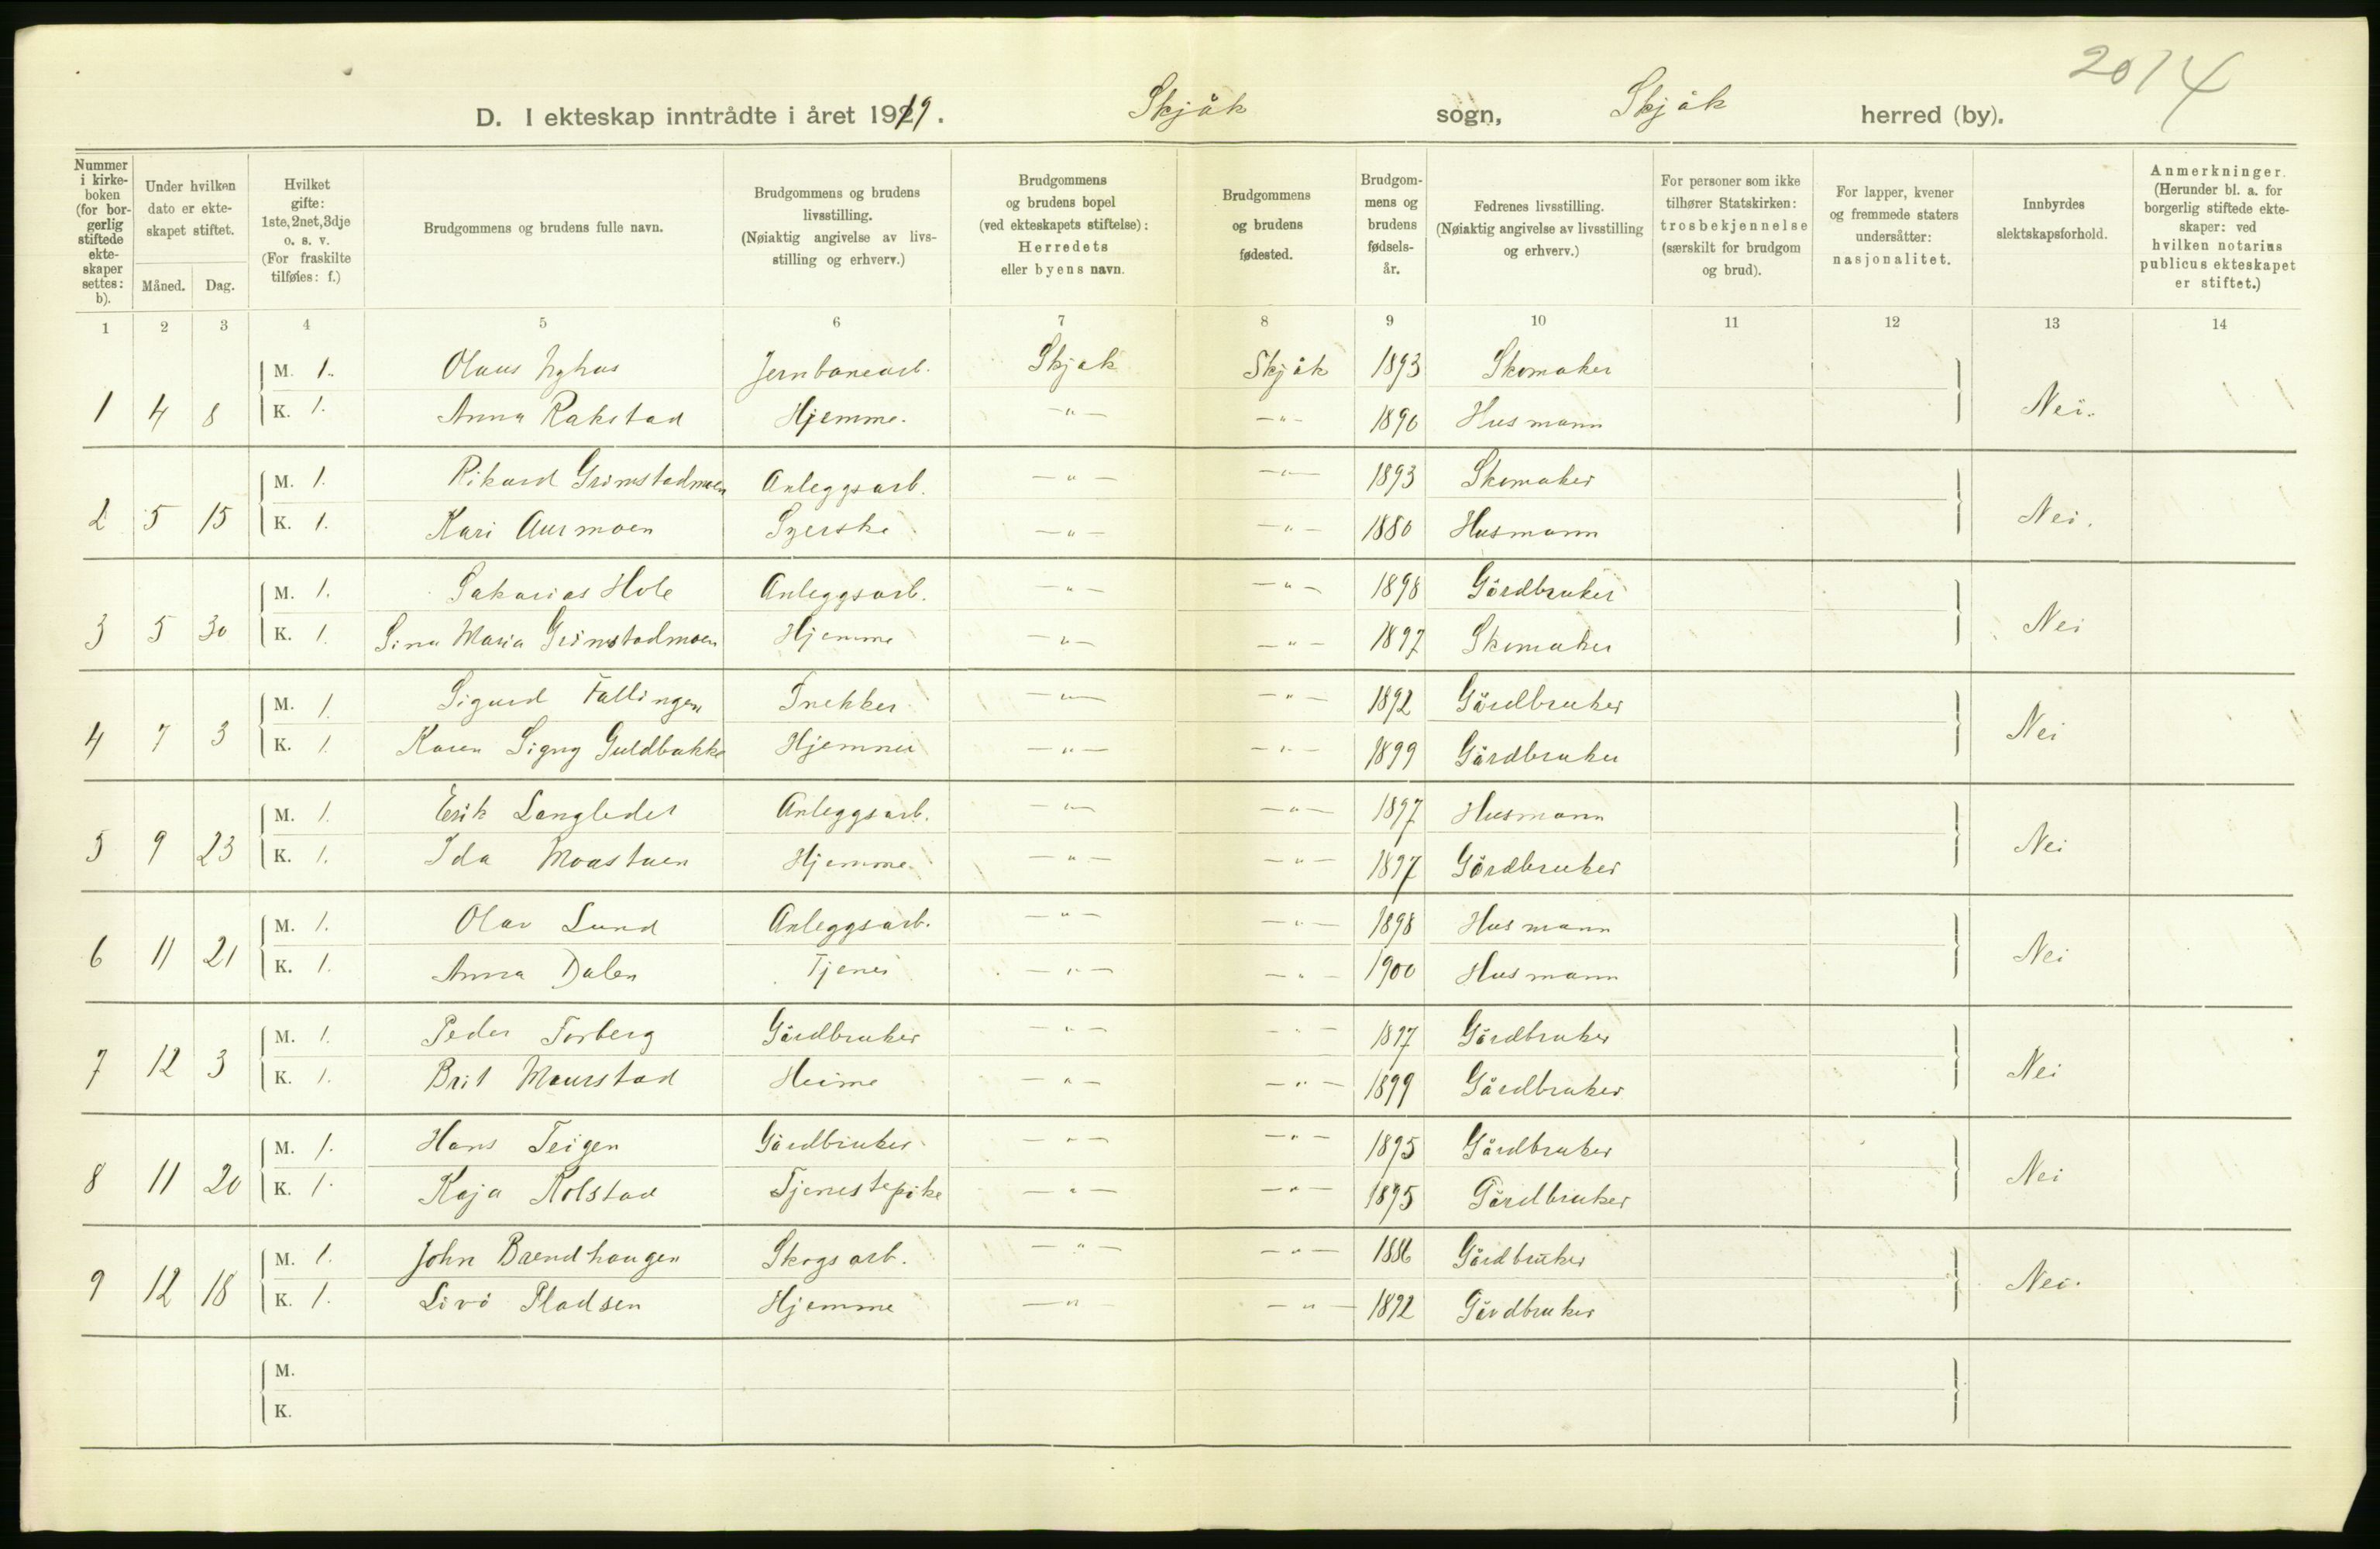 2014
D. I ekteskap inntrådte i året 1919. Skjåk sogn, Skjåk herred (by).
Nummer i kirke-boken (for bor-gerlig stiftede ekte-skaper settes: b).
Under hvilken dato er ekte-skapet stiftet.
Måned. Dag.
Hvilket gifte: 1ste, 2net, 3dje o. s. v. (For fraskilte tilføies: f.)
Brudgommens og brudens fulle navn.
Brudgommens og brudens livsstilling. (Nøiaktig angivelse av livs-stilling og erhverv.)
Brudgommens og brudens bopel (ved ekteskapets stiftelse): Herredets eller byens navn.
Brudgommens og brudens fødested.
Brudgom-mens og brudens fødsels-år.
Fedrenes livsstilling. (Nøiaktig angivelse av livsstilling og erhverv.)
For personer som ikke tilhører Statskirken: trosbekjennelse (særskilt for brudgom og brud).
For lapper, kvener og fremmede staters undersåtter: nasjonalitet.
Innbyrdes slektskapsforhold.
Anmerkninger. (Herunder bl. a. for borgerlig stiftede ekte-skaper: ved hvilken notarius publicus ekteskapet er stiftet.)
1 2 3 4 5 6 7 8 9 10 11 12 13 14
M. 1. Olaus Jernbanearb. Skjåk Skjåk 1893 Skomaker
1 4 8 K. 1. Anna Rakstad Hjemme. —"— —"— 1890 Husmann Nei.
M. 1. Rikard Grimstadmoen Anleggsarb. —"— —"— 1893 Skomaker
2 5 15 K. 1. Kari Aurmoen Syerske —"— —"— 1880 Husmann Nei.
M. 1. Sakarias Hole Anleggsarb. —"— —"— 1898 Gårdbruker
3 5 30 K. 1. Sina Maria Grimstadmoen Hjemme —"— —"— 1897 Skomaker Nei
M. 1. Sigurd Fallingen Snekker —"— —"— 1892 Gårdbruker
4 7 3 K. 1. Karen Signy Guldbakke Hjemme —"— —"— 1899 Gårdbruker Nei
M. 1. Erik Langledet Anleggsarb. —"— —"— 1897 Husmann
5 9 23 K. 1. Ida Moastuen Hjemme. —"— —"— 1897 Gårdbruker Nei
M. 1. Olav Lund Anleggsarb. —"— —"— 1898 Husmann
6 11 21 K. 1. Anna Dalen Tjener —"— —"— 1900 Husmann Nei
M. 1. Peder Forberg Gårdbruker —"— —"— 1897 Gårdbruker
7 12 3 K. 1. Brit Maurstad Heime —"— —"— 1899 Gårdbruker Nei
M. 1. Hans Teigen Gårdbruker —"— —"— 1895 Gårdbruker
8 11 20 K. 1. Kaja Kolstad Tjenestepike —"— —"— 1895 Gårdbruker Nei
M. 1. John Brendhaugen Skogsarb. —"— —"— 1886 Gårdbruker
9 12 18 K. 1. Livi Pladsen Hjemme —"— —"— 1892 Gårdbruker Nei.
M.
K.